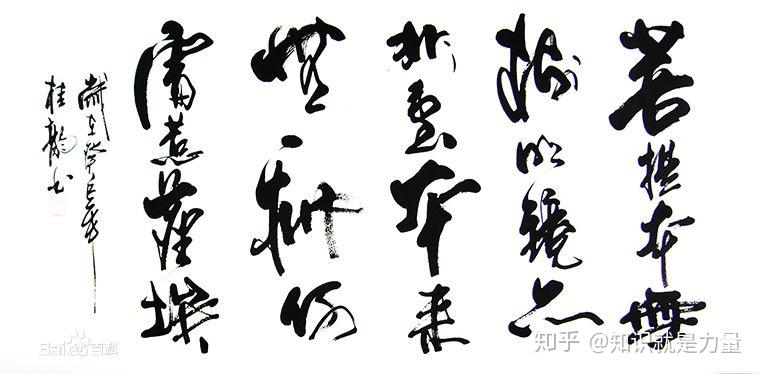 菩提本無
樹明鏡亦
非臺本來
無一物何
處惹塵埃
歲在癸巳年
桂龍书
Baidu百科
知乎 @知识就是力量